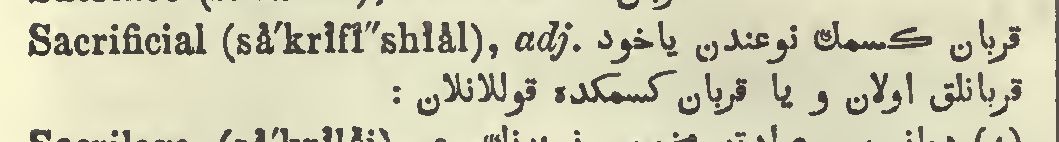 Sacrificial (så′krĭfĭ″shĭål), adj. قربان كسمك نوعندن ياخود
قربانلق اولان و يا قربان كسمكده قوللانلان :